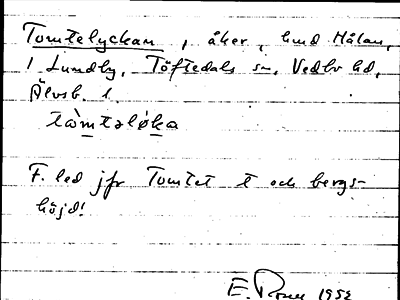 Tomtelyckan, åker, hmd Hålan,
1 Lundby, Töftedals sn, Vedbo hd,
Älvsb. l.
tòmtəløka
F. led jfr Tomtet t och bergs-
höjd!
E. Rosell 1952